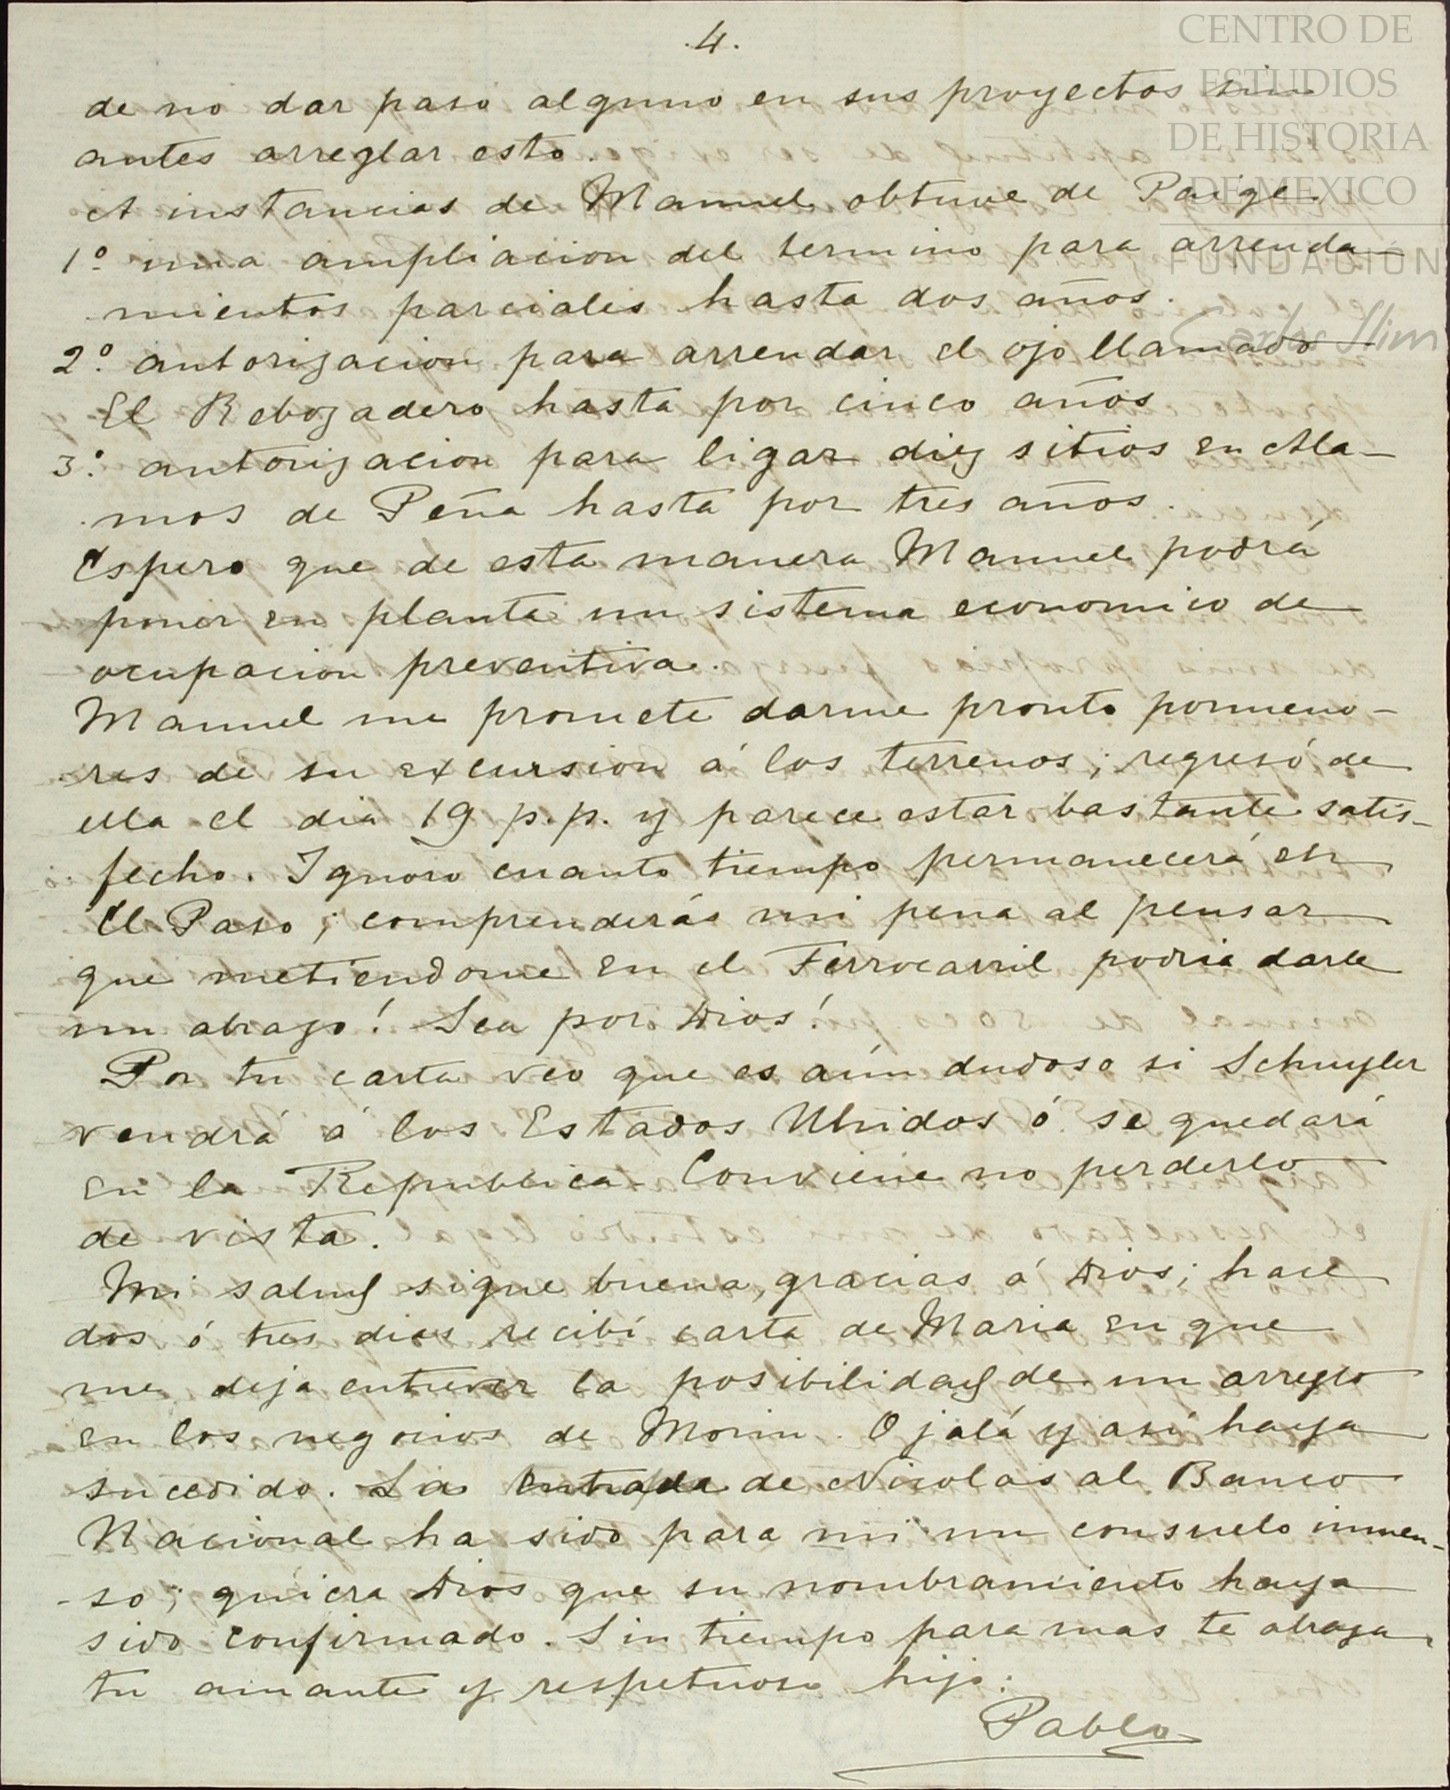 .4.
de no dar paso alguno en sus proyectos sin
antes arreglar esto.
A instancias de Manuel obtuve de Paige.
1º una ampliacion del termino para arrenda-
mientos parciales hasta dos años.
2º autorizacion para arrendar el ojo llamado
El Rebozadero hasta por cinco años
3º autorizacion para ligar diez sitios en Ala-
mos de Peña hasta por tres años.
Espero que de esta manera Manuel podrá
poner en planta un sistema economico de
ocupacion preventiva.
Manuel me promete darme pronto pormeno-
res de su excursion á los terrenos; regresó de
ella el dia 19 p.p. y parece estar bastante satis-
fecho. Ignoro cuanto tiempo permanecerá en
El Paso; comprenderás mi pena al pensar
que metiendome en el Ferrocarril podria darle
un abrazo! Sea por Dios!
Por tu carta veo que es aún dudoso si Schuyler
vendrá á los Estados Unidos ó se quedará
en la Republica. Conviene no perderlo
de vista.
Mi salud sigue buena, gracias á Dios; hace
dos ó tres dias recibí carta de Maria en que
me deja entrever la posibilidad de un arreglo
en los negocios de Morin. Ojalá y así haya
sucedido. La entrada de Nicolas al Banco
Nacional ha sido para mi un consuelo inmen-
-so; quiera Dios que su nombramiento haya
sido confirmado. Sin tiempo para mas te abraza
tu amante y respetuoso hijo.
Pablo
CENTRO DE
ESTUDIOS
DE HISTORIA
DE MEXICO
FUNDACIÓN
Carlos Slim